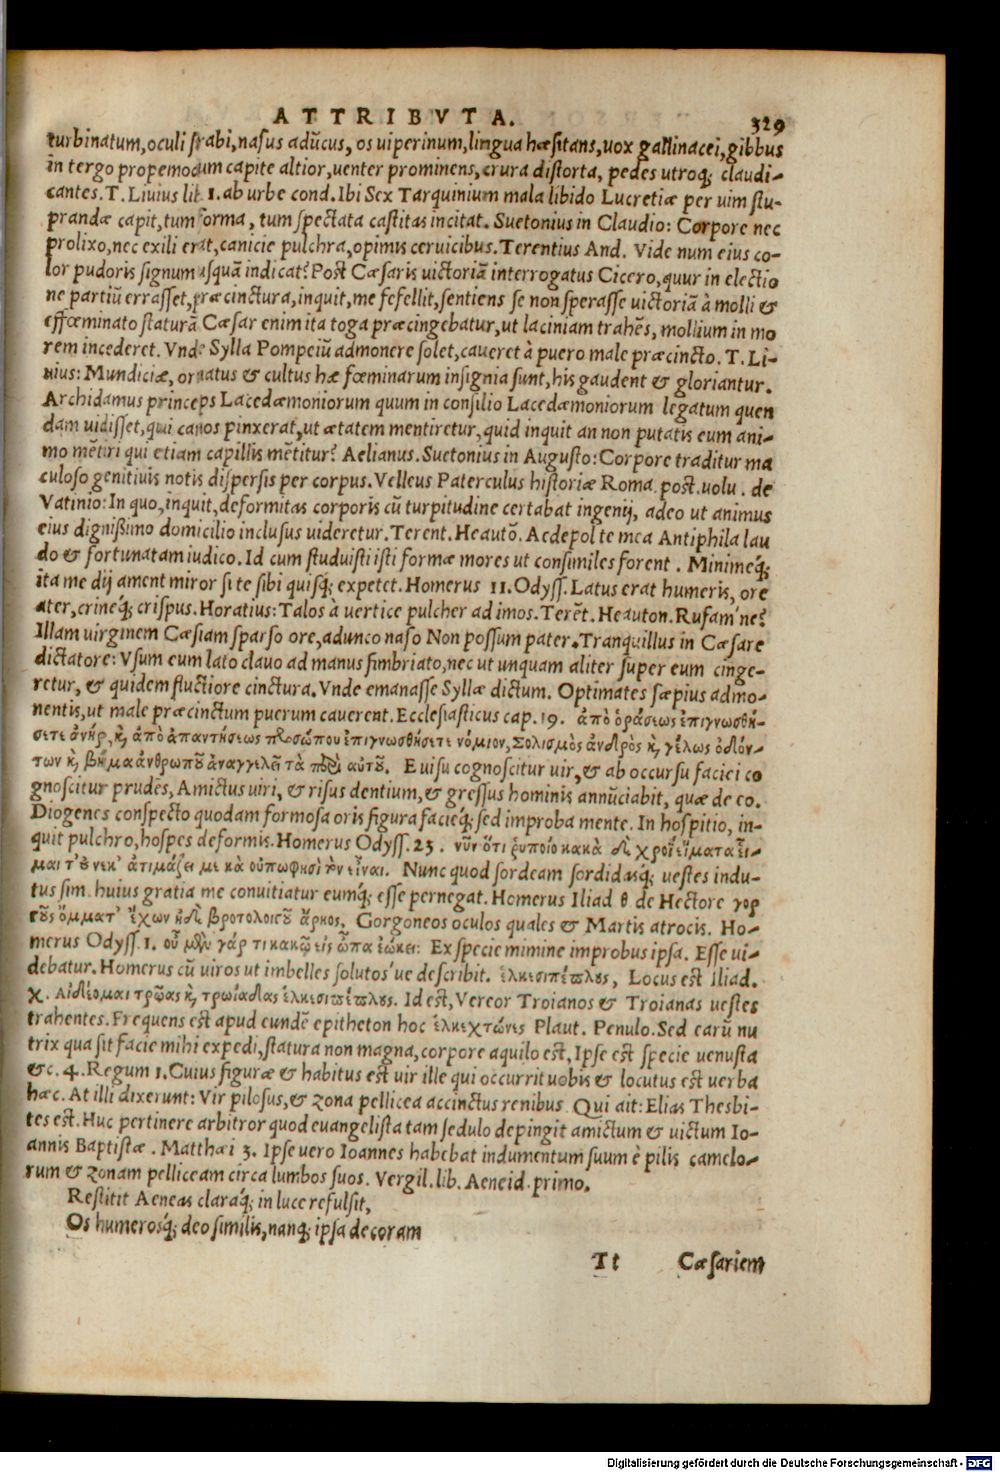 ATTRIBVTA. 329
turbinatum, oculi strabi, nasus adũcus, os uiperinum, lingua hæsitans, uox gallinacei, gibbus
in tergo propemodum capite altior, uenter prominens, crura distorta, pedes utroq; claudi-
cantes. T. Liuius lib. 1. ab urbe cond. Ibi Sex Tarquinium mala libido Lucretiæ per uim stu-
prandæ capit, tum forma, tum spectata castitas incitat. Suetonius in Claudio: Corpore nec
prolixo, nec exili erat, canicie pulchra, opimis ceruicibus. Terentius And. Vide num eius co-
lor pudoris signum usquã indicat? Post Cæsaris uictoriã interrogatus Cicero, quur in electio
ne partiũ errasset, præcinctura, inquit, me fefellit, sentiens se non sperasse uictoriã à molli &
effœminato staturã Cæsar enim ita toga præcingebatur, ut laciniam trahẽs, mollium in mo
rem incederet. Vnde Sylla Pompeiũ admonere solet, caueret à puero male præcincto. T. Li-
uius: Mundiciæ, ornatus & cultus hæ fœminarum insignia sunt, his gaudent & gloriantur.
Archidamus princeps Lacedæmoniorum quum in consilio Lacedæmoniorum legatum quen
dam uidisset, qui canos pinxerat, ut ætatem mentiretur, quid inquit an non putatis eum ani-
mo mẽtiri qui etiam capillis mẽtitur? Aelianus. Suetonius in Augusto: Corpore traditur ma
culoso genitiuis notis dispersis per corpus. Velleus Paterculus historiæ Roma. post. uolu. de
Vatinio: In quo, inquit, deformitas corporis cũ turpitudine certabat ingenij, adeo ut animus
eius dignißimo domicilio inclusus uideretur. Terent. Heautõ. Aedepol te mea Antiphila lau
do & fortunatam iudico. Id cum studuisti isti formæ mores ut consimiles forent. Minimeq́;
ita me dij ament miror si te sibi quisq; expetet. Homerus 11. Odyss. Latus erat humeris, ore
ater, crineq́; crispus. Horatius: Talos à uertice pulcher ad imos. Terẽt. Heauton. Rufam'ne?
Illam uirginem Cæsiam sparso ore, adunco naso Non possum pater. Tranquillus in Cæsare
dictatore: Vsum eum lato clauo ad manus fimbriato, nec ut unquam aliter super eum cinge-
retur, & quidem fluctiore cinctura. Vnde emanasse Syllæ dictum. Optimates sæpius admo-
nentis, ut male præcinctum puerum cauerent. Ecclesiasticus cap. 19. ἀπὸ ὁράσεως ἐπιγνωσθή-
σετε ἀνήρ, κỳ ἀπὸ ἀπαντήσεως προσώπου ἐπιγνωσθήσετε νόμιον, Σολισμὸς ἀνδρὸς κỳ γέλως ὀδόν-
των κỳ βῆμα ἀνθρωποῦ ἀναγγιλεῖ τὰ περὶ αὐτοῦ. E uisu cognoscitur uir, & ab occursu faciei co
gnoscitur prudẽs, Amictus uiri, & risus dentium, & gressus hominis annũciabit, quæ de eo.
Diogenes conspecto quodam formosa oris figura facieq́; sed improba mente. In hospitio, in-
quit pulchro, hospes deformis. Homerus Odyss. 23. νῦν ὅτι ῥυποίο κακὰ δὲ χροῒ εἵματα εἷ-
μαι τ'όνεκ' ἀτιμάζει με κὰ οὔπω φησὶ τὸν εἶναι. Nunc quod sordeam sordidasq́; uestes indu-
tus sim huius gratia me conuitiatur eumq́; esse pernegat. Homerus Iliad θ de Hectore γορ
γοῦς ὄμματ' ἔχων ἠδὲ βροτολοιγοῦ ἄρηος, Gorgoneos oculos quales & Martis atrocis. Ho-
merus Odyss. 1. οὐ μὲν γάρ τι κακῷ εἰς ὦπα ἐῴκει: Ex specie mimine improbus ipsa. Esse ui-
debatur. Homerus cũ uiros ut imbelles solutos'ue describit. ἑλκεσιπέπλους, Locus est Iliad.
χ. αἰδέομαι τρῶας κỳ τρωιάδας ἑλκεσιπέπλους. Id est, Vereor Troianos & Troianas uestes
trahentes. Frequens est apud eundẽ epitheton hoc ἑλκεχτώνες Plaut. Penulo. Sed earũ nu
trix qua sit facie mihi expedi, statura non magna, corpore aquilo est, Ipse est specie uenusta
&c. 4. Regum 1. Cuius figuræ & habitus est uir ille qui occurrit uobis & locutus est uerba
hæc. At illi dixerunt: Vir pilosus, & zona pellicea accinctus renibus Qui ait: Elias Thesbi-
tes est. Huc pertinere arbitror quod euangelista tam sedulo depingit amictum & uictum Io-
annis Baptistæ. Matthæi 3. Ipse uero Ioannes habebat indumentum suum è pilis camelo-
rum & zonam pelliceam circa lumbos suos. Vergil. lib. Aeneid. primo.
Restitit Aeneas claraq́; in luce refulsit,
Os humerosq́; deo similis, nanq; ipsa decoram
Tt Cæsariem
Digitalisierung gefördert durch die Deutsche Forschungsgemeinschaft - DFG